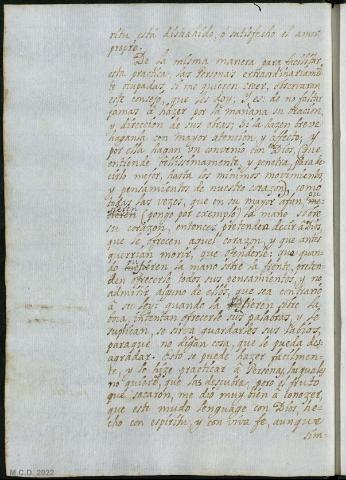 ritu está distrahido, ó satisfecho el amor
proprio.
De la misma manera para facilitar
esta practica, las Personas extraordinariamte
ocupadas, si me quieren creer, observaràn
este consejo, que les doy, y es: de no faltar
jamas à hazer por la mañana su oracion,
y direccion de sus obras; Si la hazen breve
haganla con mayor atencion, y afecto, y
por ella hagan un convenio con Dios, (Que
entiende bellissimamente, y penetra, para de-
cirlo mejor, hasta los minimos movimientos
y pensamientos de nuestro corazon), como
todas las vezes, que en su mayor afan,
(pongo por exemplo) la mano sobre
su corazon, entonces pretenden decir à Dios,
que se ofrecen aquel corazon, y que antes
querrian morir, que ofenderle; que quan-
do la mano sobre la frente, preten-
den ofrecerle todos sus pensamientos, y no
admitir alguno de ellos, que sea contrario
à su ley; quando la sobre la
boca, intentan ofrecerle sus palabras, y se
suplican, se sirva guardarles sus labios,
paraque no digan cosa, que le pueda des-
agradar. Esto se puede hazer facilmen-
te, y se hize practicar à Personas, las quales
no quiero, que las descubra, pero el fruto
que sacaron, me diò muy bien à conozer,
que este mudo lenguage con Dios, he-
cho con espiritu, y con viva fe, aunque
sim-
M.C.D. 2022